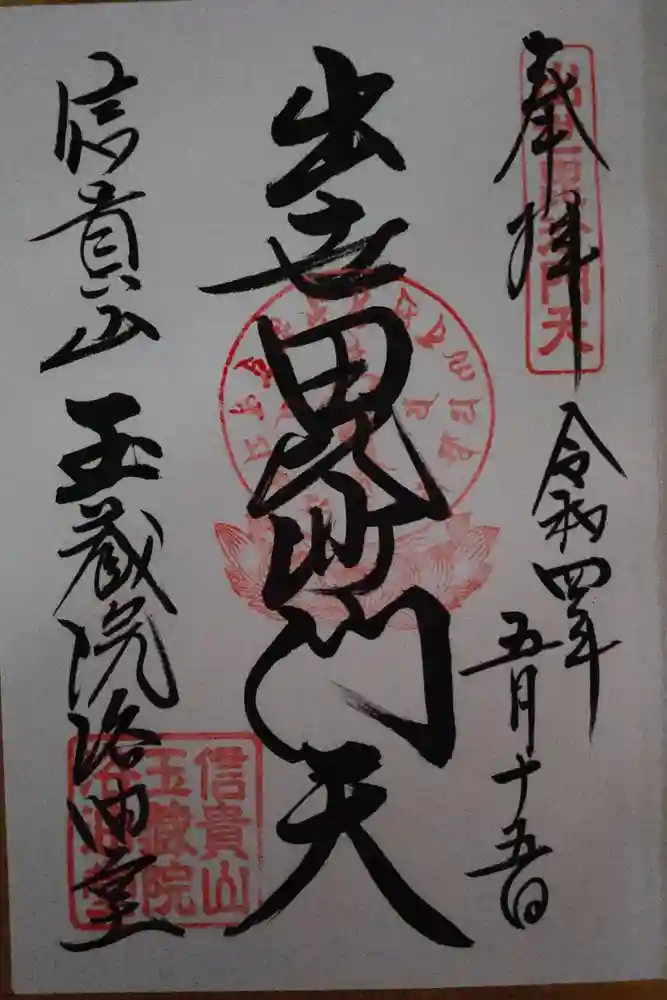 奉拝
出世毘沙門天
令和四年
五月十五日
出世毘沙門天
信貴山 玉蔵院 浴油堂
信貴山
玉蔵院
浴油堂